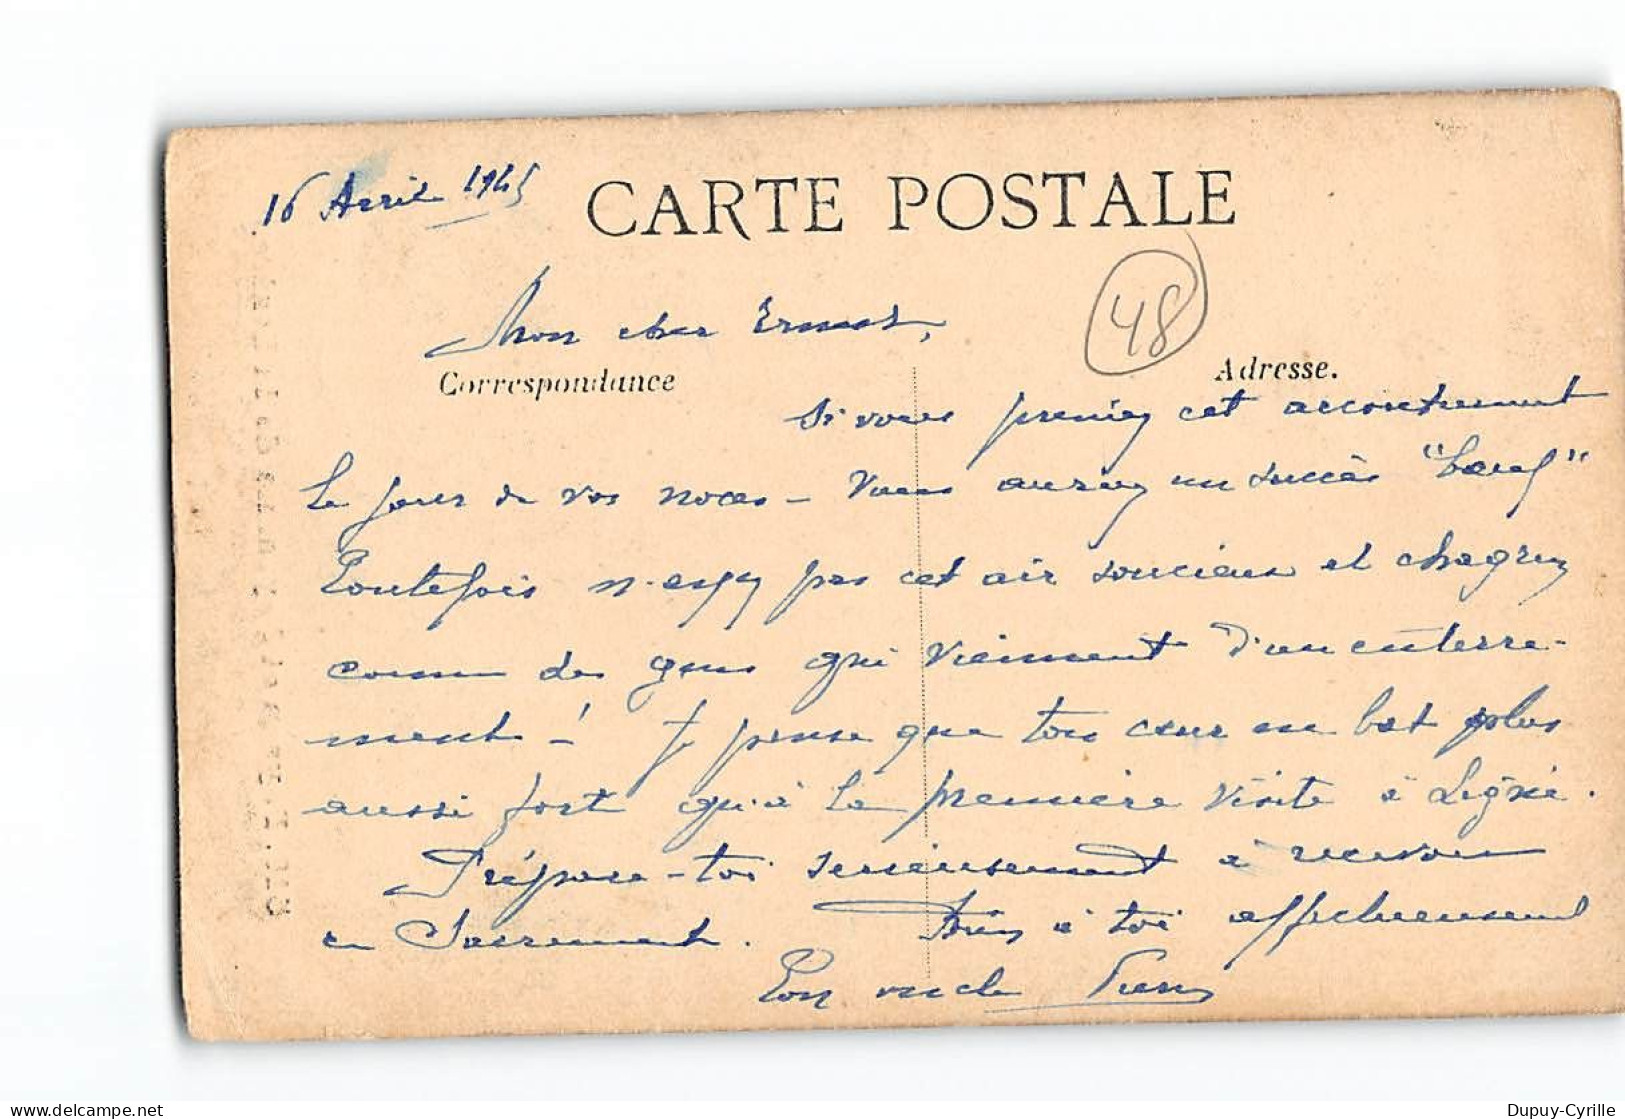 16 Avril 1945
CARTE POSTALE
48
Mon cher Ernest,
Correspondance
Adresse.
Si vous preniez cet accoutrement
le jour de vos noces – Vous auriez un succès "bœuf"
Toutefois n'ayez pas cet air soucieux et chagrin
comme des gens qui viennent d'un enterre-
ment – ! Je pense que ton cœur en bat plus
aussi fort qu'à la première visite à Ligné.
Prépare-toi sérieusement à recevoir
ce Sacrement. Bien à toi affectueusement
Ton oncle Pierre
Dupuy-Cyrille